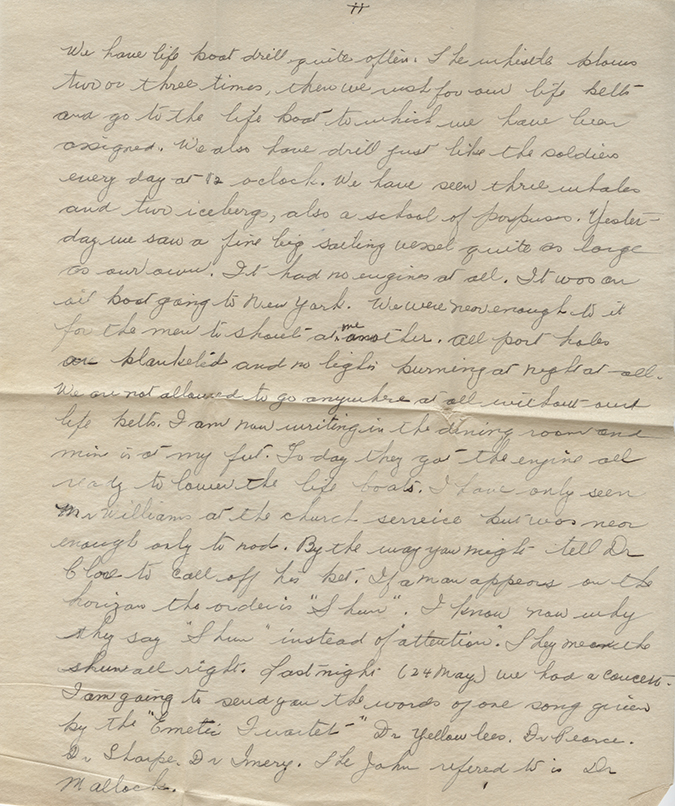 11
We have life boat drill quite often. The whistle blows
two or three times, then we rush for our life belts
and go to the life boat to which we have been
assigned. We also have drill just like the soldiers
every day at 12 oclock. We have seen three whales
and two icebergs, also a school of porpuses. Yester-
day we saw a fine big sailing vessel quite as large
as our own. It had no engines at all. It was an
oil boat going to New York. We were near enough to it
for the men to shout at one another. All port holes
are blanketed and no lights burning at night at all.
We are not allowed to go anywhere at all without our
life belts. I am now writing in the dining room and
mine is at my feet. Today they got the engine all
ready to lower the life boats. I have only seen
Mr Williams at the church service but was near
enough only to nod. By the way you might tell Dr
to call off his bet. If a man appears on the
horizon the order is "Shun". I know now why
they say "Shun" instead of attention. They mean the
shun all right. Last night (24 May) we had a concert.
I am going to send you the words of one song given
by the "Emetic Quartet" Dr Yellowlees. Dr Pearce.
Dr Sharpe. Dr Imery. The John refered to is Dr
Mallock.